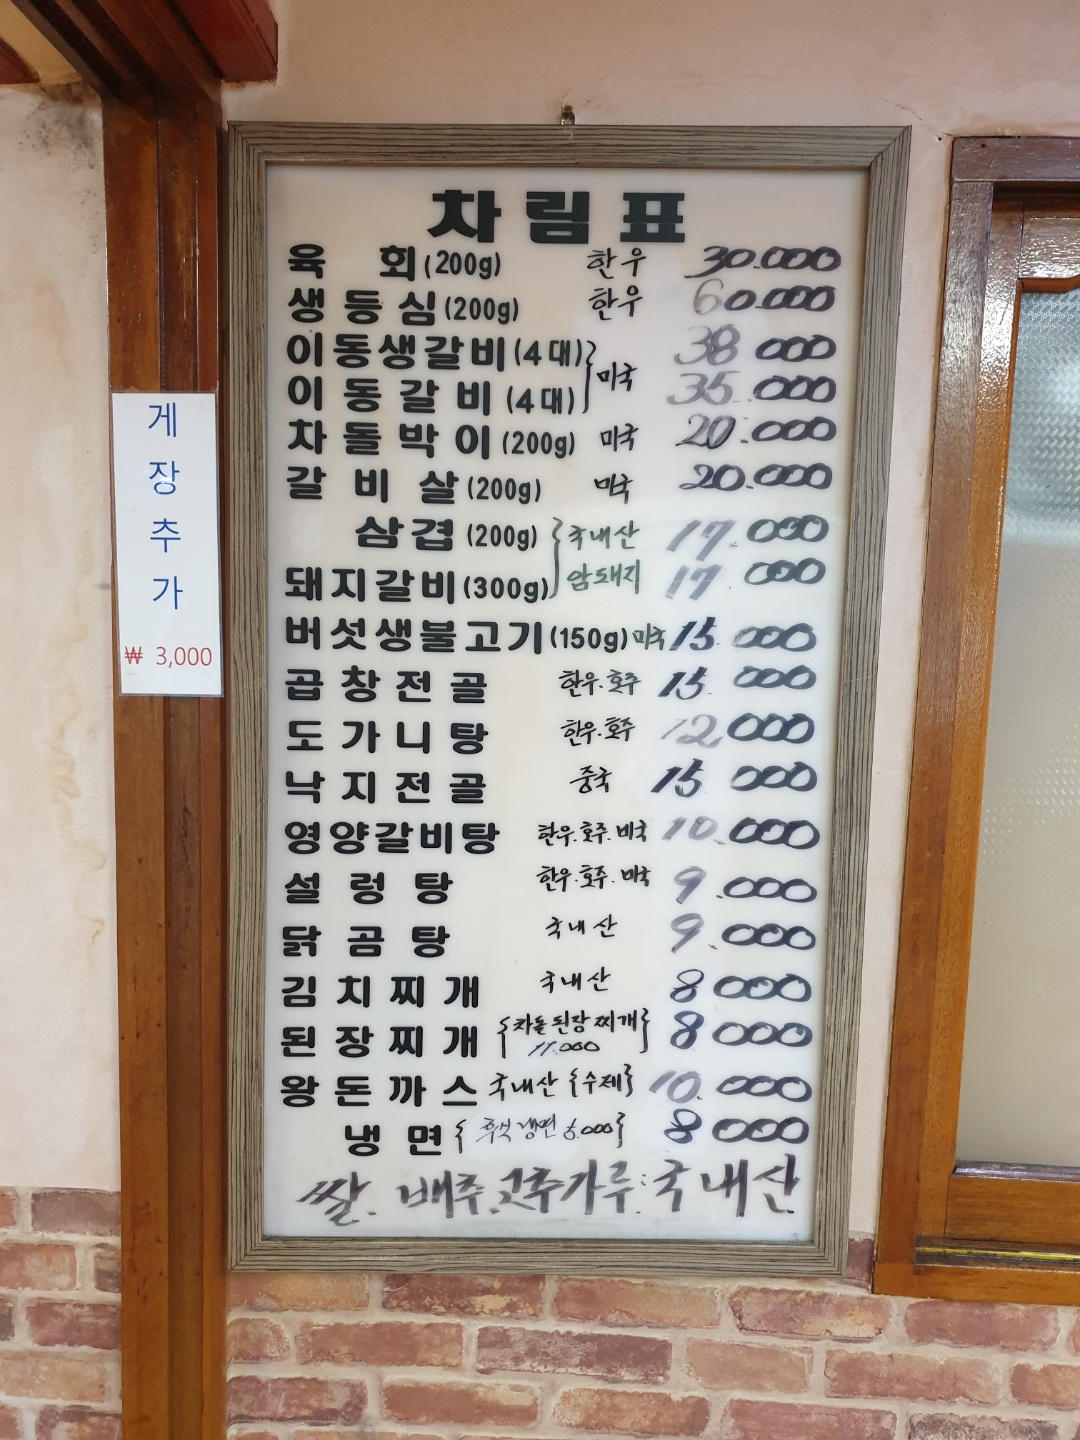 차림표
육 회(200g) 한우 30.000
생등심(200g) 한우 60.000
이동생갈비(4대) 38 000
미국
이동갈비(4대) 35.000
차돌박이(200g) 미국 20.000
갈비살(200g) 미국 20.000
삼겹(200g) 국내산 17.000
돼지갈비(300g) 암돼지 17 000
버섯생불고기(150g) 미국 15 000
곱창전골 한우.호주 15 000
도가니탕 한우.호주 12000
낙지전골 중국 15 000
영양갈비탕 한우.호주.미국 10.000
설렁탕 한우.호주.미국 9.000
닭곰탕 국내산 9.000
김치찌개 국내산 8000
된장찌개 {차돌된장찌개 11.000} 8000
왕돈까스 국내산 {수제} 10.000
냉면 {후식냉면 5.000} 8000
쌀. 배추.고추가루:국내산
게
장
추
가
₩ 3,000